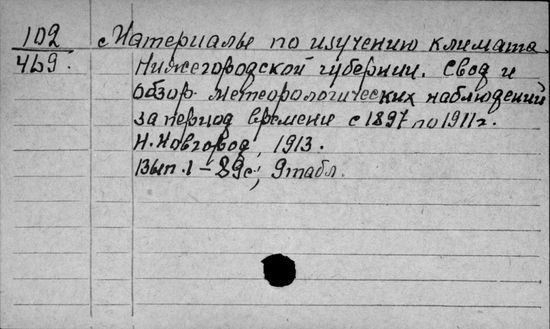 102 Материалы по изучению климата
469. Нижегородской губернии. Свод и
обзор метеорологических наблюдений
за период времени с 1897 по 1911 г.
Н.Новгород, 1913.
Вып.1 – 89с; 9табл.